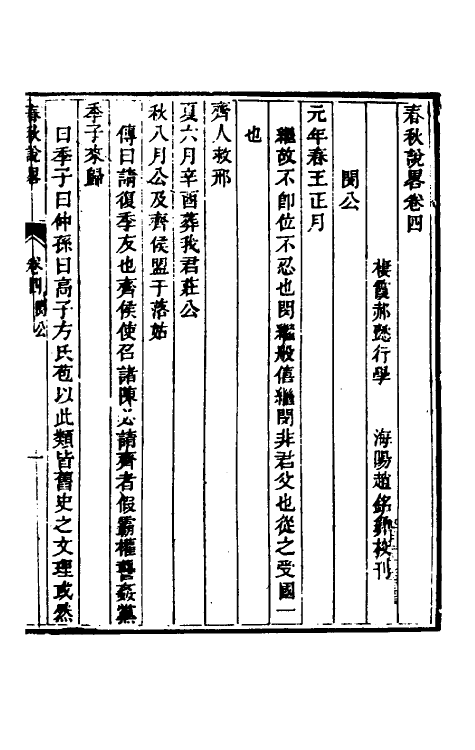 春秋說畧卷四
棲霞郝懿行學　海陽趙銘彝校刊
閔公
元年春王正月
繼故不即位不忍也閔繼般僖繼閔非君父也從之受國一
也
齊人救邢
夏六月辛酉葬我君莊公
秋八月公及齊侯盟于落姑
傳曰請復季友也齊侯使召諸陳必請齊者假霸權讋姦黨
季子來歸
曰季子曰仲孫曰高子方氏苞以此類皆舊史之文理或然
春秋說畧
卷四 閔公
一